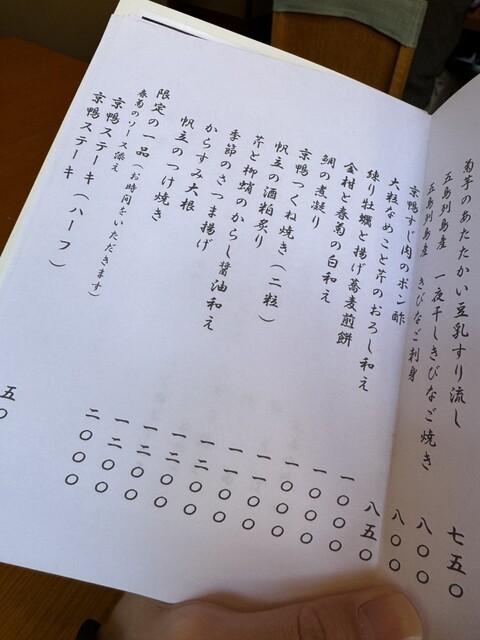 菊芋のあたたかい豆乳すり流し
五島列島産 一夜干しきびなご焼き
五島列島産 きびなご刺身
京鴨すじ肉のポン酢
大粒なめこと芹のおろし和え
練り牡蠣と揚げ蕎麦煎餅
金柑と春菊の白和え
鯛の煮凝り
京鴨つくね焼き(二粒)
帆立の酒粕炙り
芹と柳蛸のからし醤油和え
季節のさつま揚げ
からすみ大根
帆立のつけ焼き
限定の一品
春菊のソース添え(お時間をいただきます)
京鴨ステーキ
京鴨ステーキ(ハーフ)
七五〇
八〇〇
八〇〇
八五〇
一〇〇〇
一〇〇〇
一〇〇〇
二〇〇〇
五〇